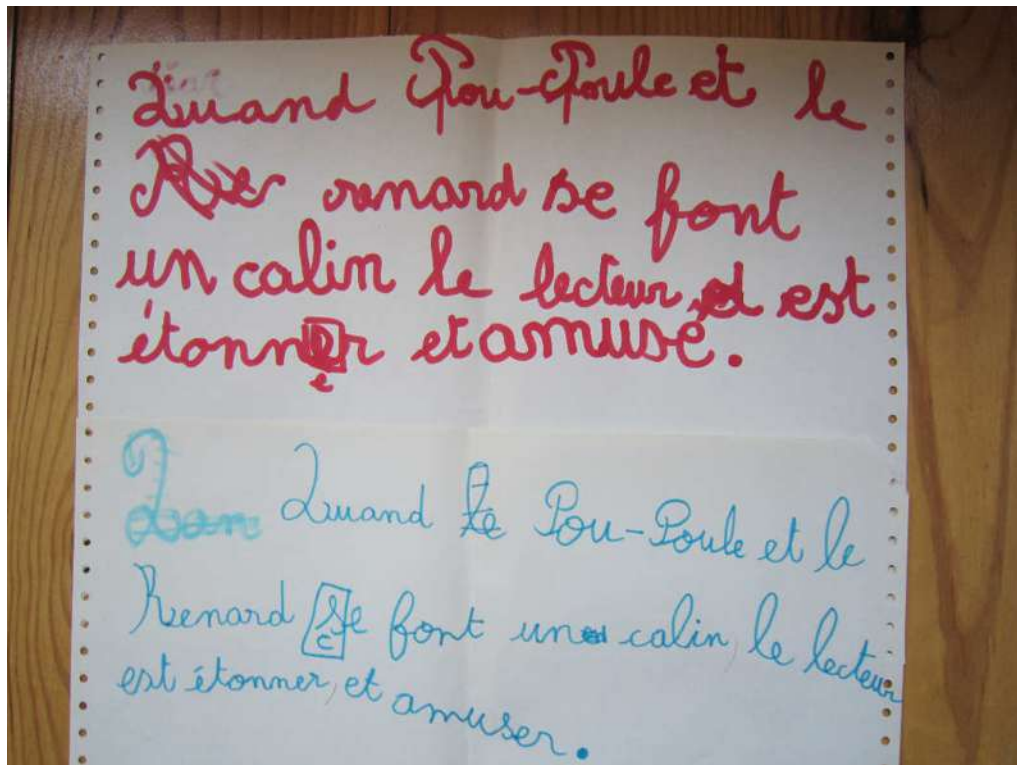 Quand Pou-Poule et le
renard se font
un calin le lecteur, est
étonner et amusé.
é
Quand le Pou-Poule et le
Renard se font un calin, le lecteur
c
est étonner, et amuser.